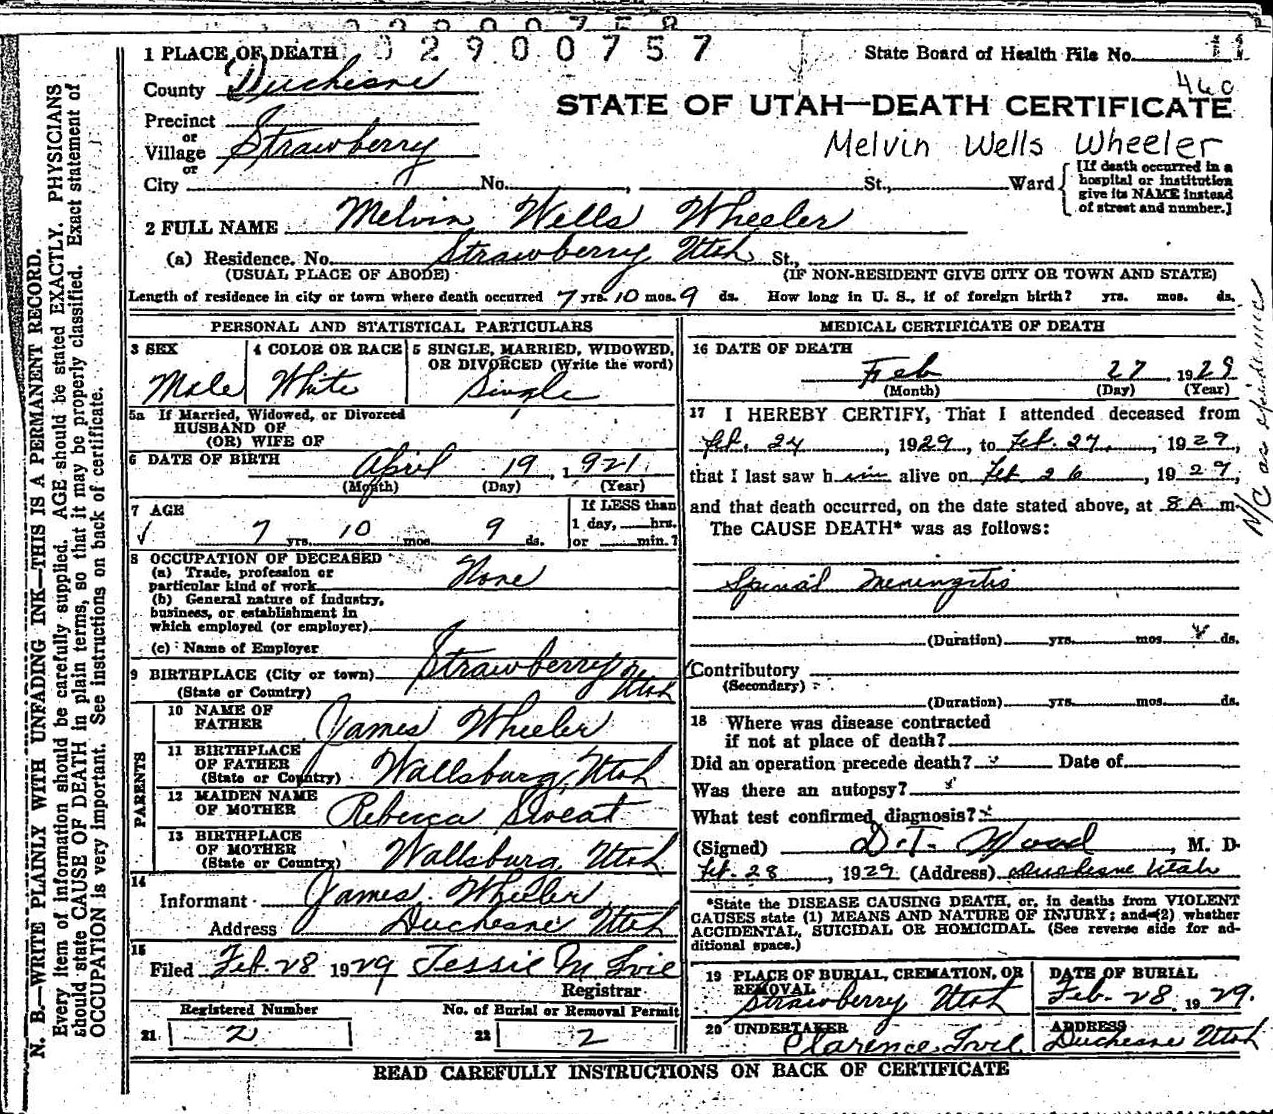 02900757
1 PLACE OF DEATH
State Board of Health File No.
County Duchesne
460
STATE OF UTAH—DEATH CERTIFICATE
Precinct
or
Village Strawberry
or
Melvin Wells Wheeler
City No. , St., Ward
[If death occurred in a
hospital or institution
give its NAME instead
of street and number.]
2 FULL NAME Melvin Wells Wheeler
(a) Residence. No. Strawberry Utah St.,
(USUAL PLACE OF ABODE) (IF NON-RESIDENT GIVE CITY OR TOWN AND STATE)
Length of residence in city or town where death occurred 7 yrs. 10 mos. 9 ds. How long in U. S., if of foreign birth? yrs. mos. ds.
PERSONAL AND STATISTICAL PARTICULARS
3 SEX 4 COLOR OR RACE 5 SINGLE, MARRIED, WIDOWED,
OR DIVORCED (Write the word)
Male White Single
5a If Married, Widowed, or Divorced
HUSBAND OF
(OR) WIFE OF
6 DATE OF BIRTH April 19, 1921
(Month) (Day) (Year)
7 AGE If LESS than
1 day, hrs.
7 yrs. 10 mos. 9 ds. or min.?
8 OCCUPATION OF DECEASED
(a) Trade, profession or
particular kind of work None
(b) General nature of industry,
business, or establishment in
which employed (or employer)
(c) Name of Employer
9 BIRTHPLACE (City or town) Strawberry
(State or Country) Utah
PARENTS
10 NAME OF
FATHER James Wheeler
11 BIRTHPLACE
OF FATHER
(State or Country) Wallsburg, Utah
12 MAIDEN NAME
OF MOTHER Rebecca Sweat
13 BIRTHPLACE
OF MOTHER
(State or Country) Wallsburg, Utah
14
Informant James Wheeler
Address Duchesne Utah
15
Filed Feb. 28 1929 Tessie M Ivie
Registrar
Registered Number No. of Burial or Removal Permit
21 2 22 2
MEDICAL CERTIFICATE OF DEATH
16 DATE OF DEATH
Feb 27, 1929
(Month) (Day) (Year)
17 I HEREBY CERTIFY, That I attended deceased from
Feb. 24, 1929, to Feb. 27, 1929,
that I last saw him alive on Feb 26, 1929,
and that death occurred, on the date stated above, at 8 A m.
The CAUSE DEATH* was as follows:
Spinal Meningitis
(Duration) yrs. mos. ds.
Contributory
(Secondary)
(Duration) yrs. mos. ds.
18 Where was disease contracted
if not at place of death?
Did an operation precede death? Date of
Was there an autopsy?
What test confirmed diagnosis?
(Signed) D. T. , M. D.
Feb. 28, 1929 (Address) Duchesne Utah
*State the DISEASE CAUSING DEATH, or, in deaths from VIOLENT
CAUSES state (1) MEANS AND NATURE OF INJURY; and (2) whether
ACCIDENTAL, SUICIDAL OR HOMICIDAL. (See reverse side for ad-
ditional space.)
19 PLACE OF BURIAL, CREMATION, OR
REMOVAL
Strawberry Utah
DATE OF BURIAL
Feb. 28 1929.
20 UNDERTAKER
Clarence Ivie
ADDRESS
Duchesne Utah
READ CAREFULLY INSTRUCTIONS ON BACK OF CERTIFICATE
N. B.—WRITE PLAINLY WITH UNFADING INK—THIS IS A PERMANENT RECORD.
Every item of information should be carefully supplied. AGE should be stated EXACTLY. PHYSICIANS
should state CAUSE OF DEATH in plain terms, so that it may be properly classified. Exact statement of
OCCUPATION is very important. See instructions on back of certificate.
N/C as epidemic